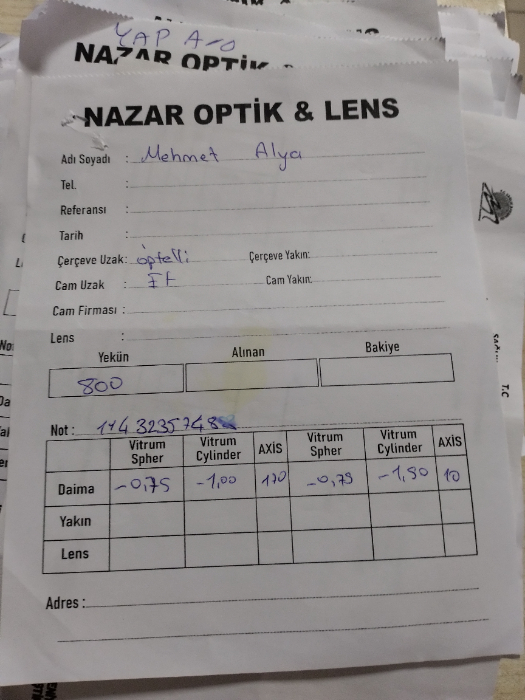 YAP A-O
NAZAR OPTİK
NAZAR OPTİK & LENS
Adı Soyadı : Mehmet Alya
Tel. :
Referansı :
Tarih :
Çerçeve Uzak: optelli Çerçeve Yakın:
Cam Uzak : Cam Yakın:
Cam Firması :
Lens :
Yekün Alınan Bakiye
800
Not :
Vitrum Spher Vitrum Cylinder AXİS Vitrum Spher Vitrum Cylinder AXİS
Daima -0,75 -1,00 170 -0,75 -1,50 10
Yakın
Lens
Adres :
T.C